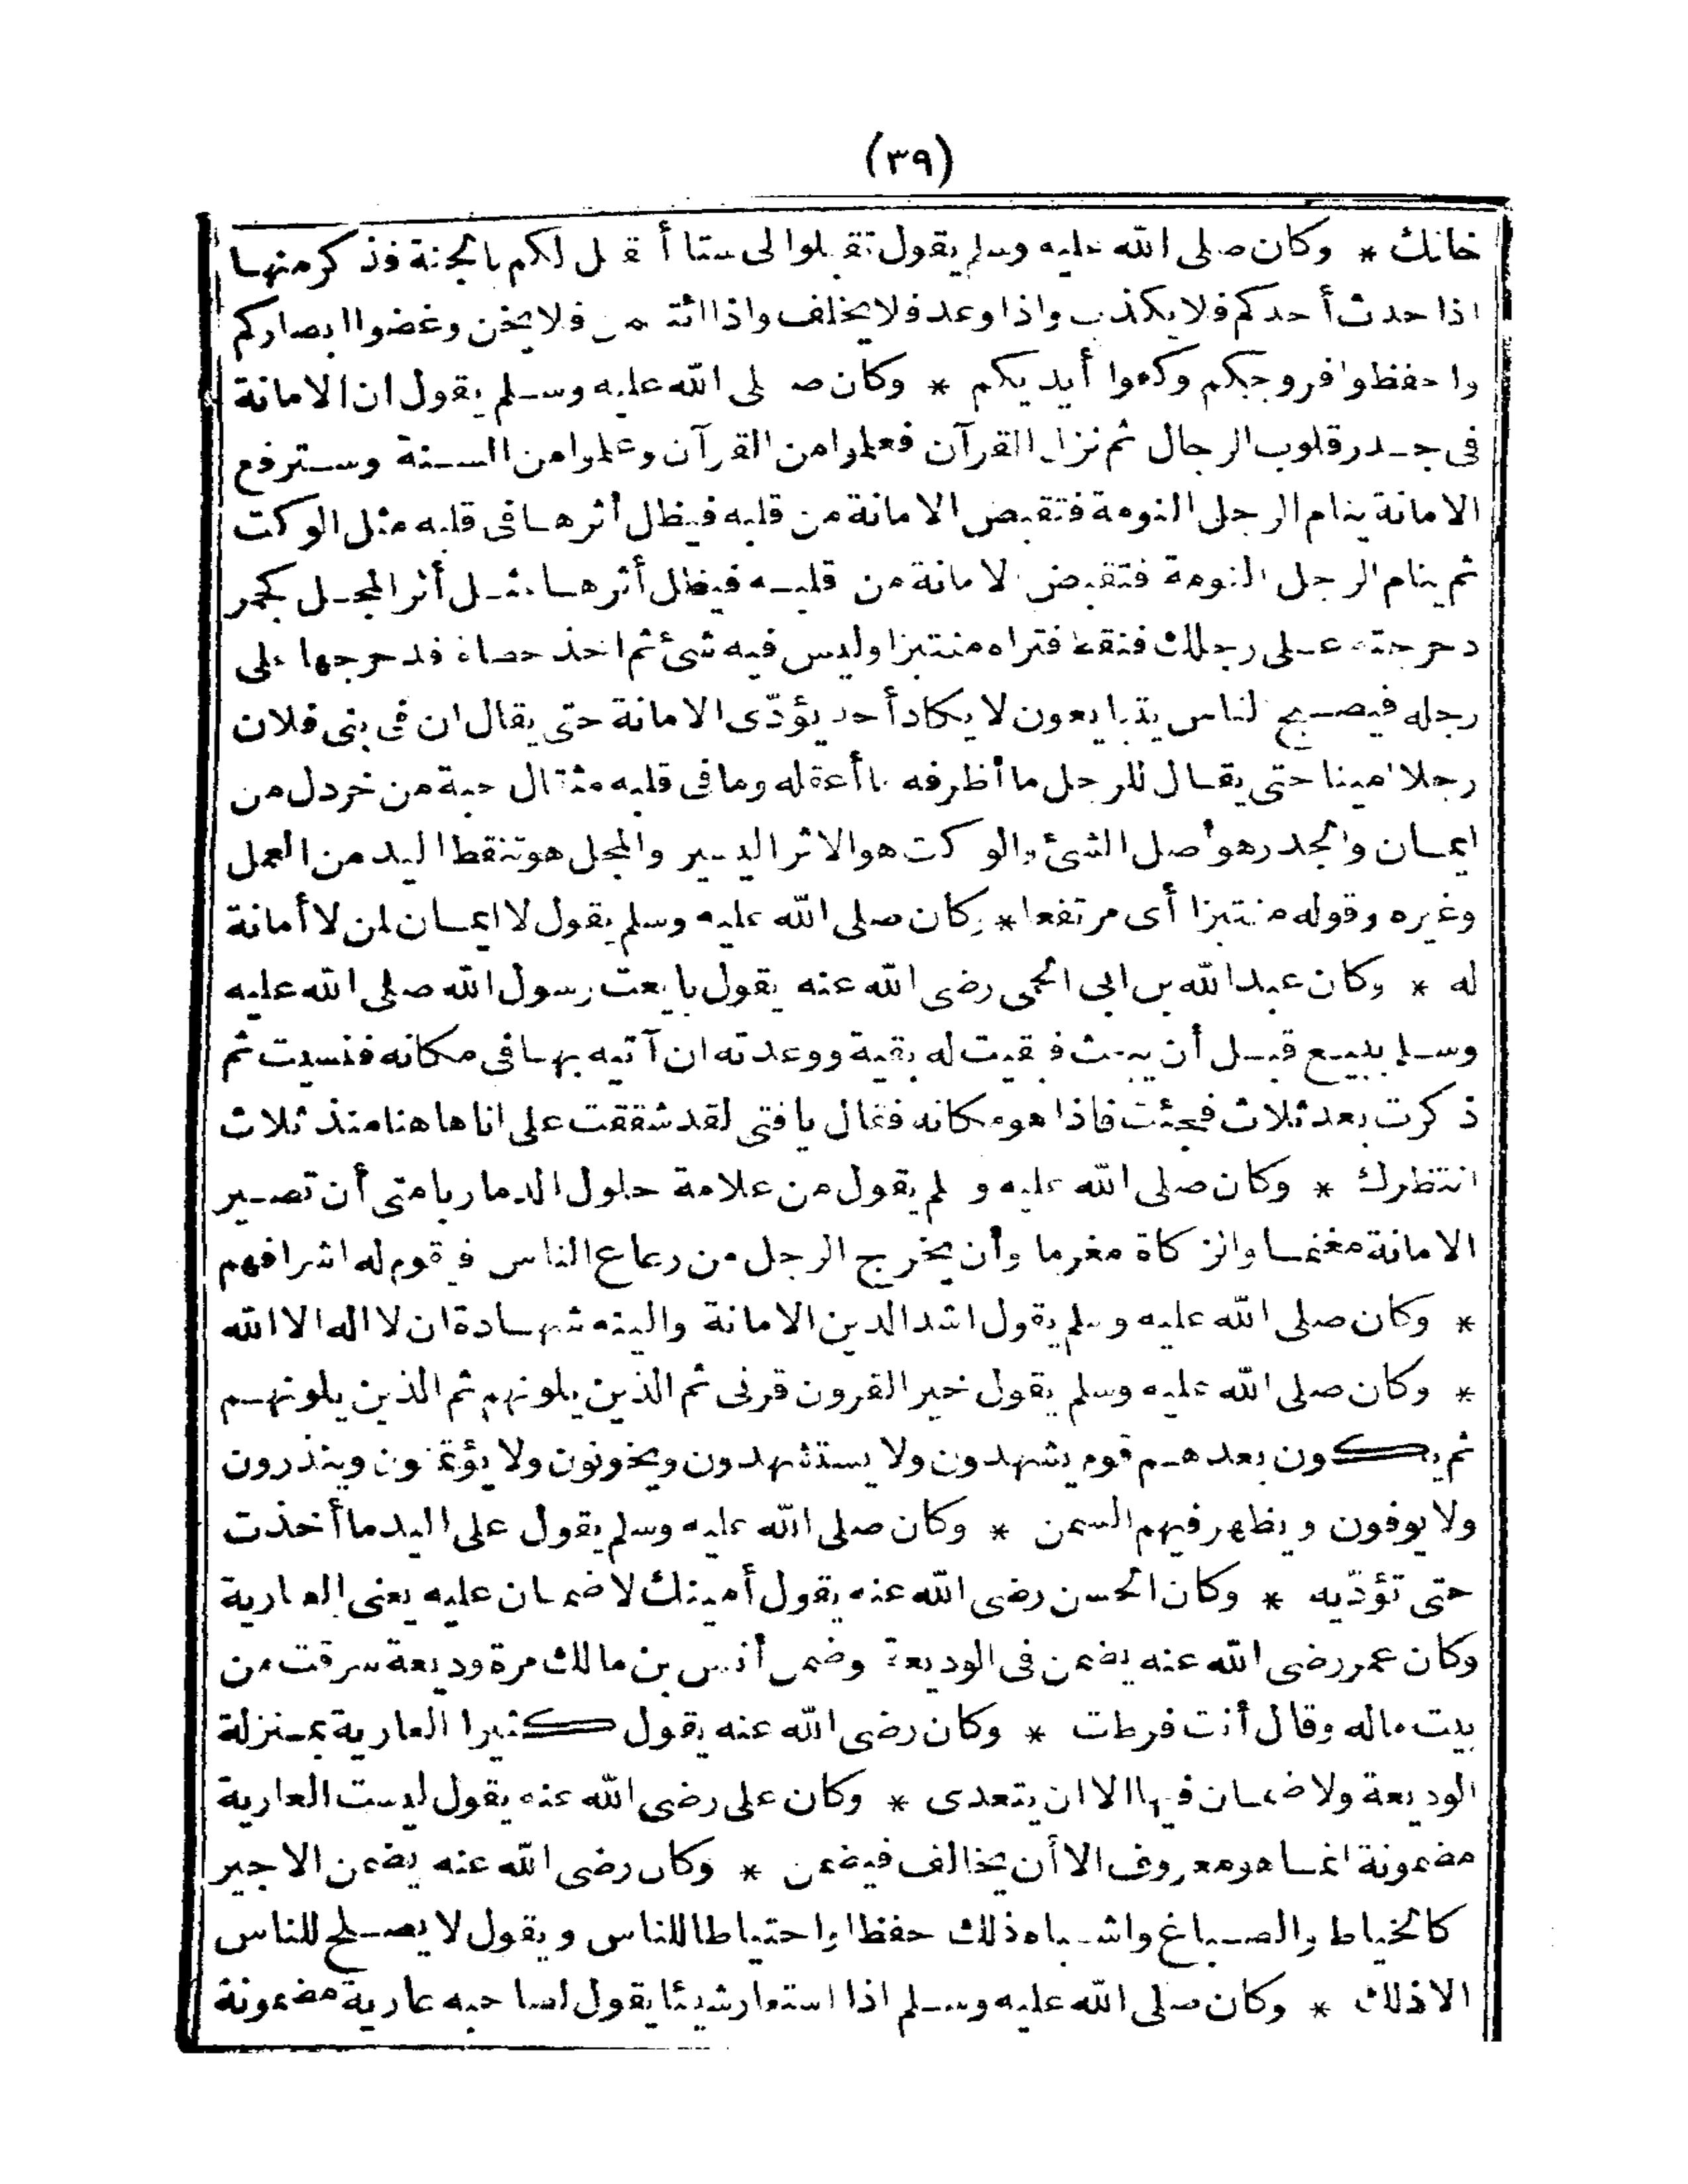 (٣٩)
خانك * وكان صلى الله عليه وسلم يقول تقبلوا لى ستا أتقبل لكم بالجنة فذكر منها
اذا حدث أحدكم فلا يكذب واذا وعد فلا يخلف واذا ائتمن فلا يخن وغضوا ابصاركم
واحفظوا فروجكم وكفوا أيديكم * وكان صلى الله عليه وسلم يقول ان الامانة
فى جدر قلوب الرجال ثم نزل القرآن فعلموا من القرآن وعلموا من السنة وسترفع
الامانة ينام الرجل النومة فتقبض الامانة من قلبه فيظل أثرها فى قلبه مثل الوكت
ثم ينام الرجل النومة فتقبض الامانة من قلبه فيظل أثرها مثل أثر المجل كجمر
دحرجته على رجلك فنفط فتراه منتبرا وليس فيه شئ ثم اخذ حصاة فدحرجها على
رجله فيصبح الناس يتبايعون لا يكاد أحد يؤدّى الامانة حتى يقال ان فى بنى فلان
رجلا امينا حتى يقال للرجل ما أظرفه ما أعقله وما فى قلبه مثقال حبة من خردل من
ايمان والجدر هو أصل الشئ والوكت هو الاثر اليسير والمجل هو تنفط اليد من العمل
وغيره وقوله منتبرا أى مرتفعا * وكان صلى الله عليه وسلم يقول لا ايمان لمن لا أمانة
له * وكان عبد الله بن ابى الحمى رضى الله عنه يقول بايعت رسول الله صلى الله عليه
وسلم ببيع قبل أن يبعث فبقيت له بقية ووعدته ان آتيه بها فى مكانه فنسيت ثم
ذكرت بعد ثلاث فجئت فاذا هو مكانه فقال يا فتى لقد شققت على انا هاهنا منذ ثلاث
انتظرك * وكان صلى الله عليه وسلم يقول من علامة حلول الدمار بامتى أن تصير
الامانة مغنما والزكاة مغرما وأن يخرج الرجل من رعاع الناس فيقوم له اشرافهم
* وكان صلى الله عليه وسلم يقول اشد الدين الامانة والينه شهادة ان لا اله الا الله
* وكان صلى الله عليه وسلم يقول خير القرون قرنى ثم الذين يلونهم ثم الذين يلونهم
ثم يكون بعدهم قوم يشهدون ولا يستشهدون ويخونون ولا يؤتمنون وينذرون
ولا يوفون ويظهر فيهم السمن * وكان صلى الله عليه وسلم يقول على اليد ما أخذت
حتى تؤدّيه * وكان الحسن رضى الله عنه يقول أمينك لا ضمان عليه يعنى العارية
وكان عمر رضى الله عنه يضمن فى الوديعة وضمن أنس بن مالك مرة وديعة سرقت من
بيت ماله وقال أنت فرطت * وكان رضى الله عنه يقول كثيرا العارية بمنزلة
الوديعة ولا ضمان فيها الا ان يتعدى * وكان على رضى الله عنه يقول ليست العارية
مضمونة انما هو معروف الا أن يخالف فيضمن * وكان رضى الله عنه يضمن الاجير
كالخياط والصباغ واشباه ذلك حفظا واحتياطا للناس ويقول لا يصلح للناس
الا ذلك * وكان صلى الله عليه وسلم اذا استعار شيئا يقول لصاحبه عارية مضمونة